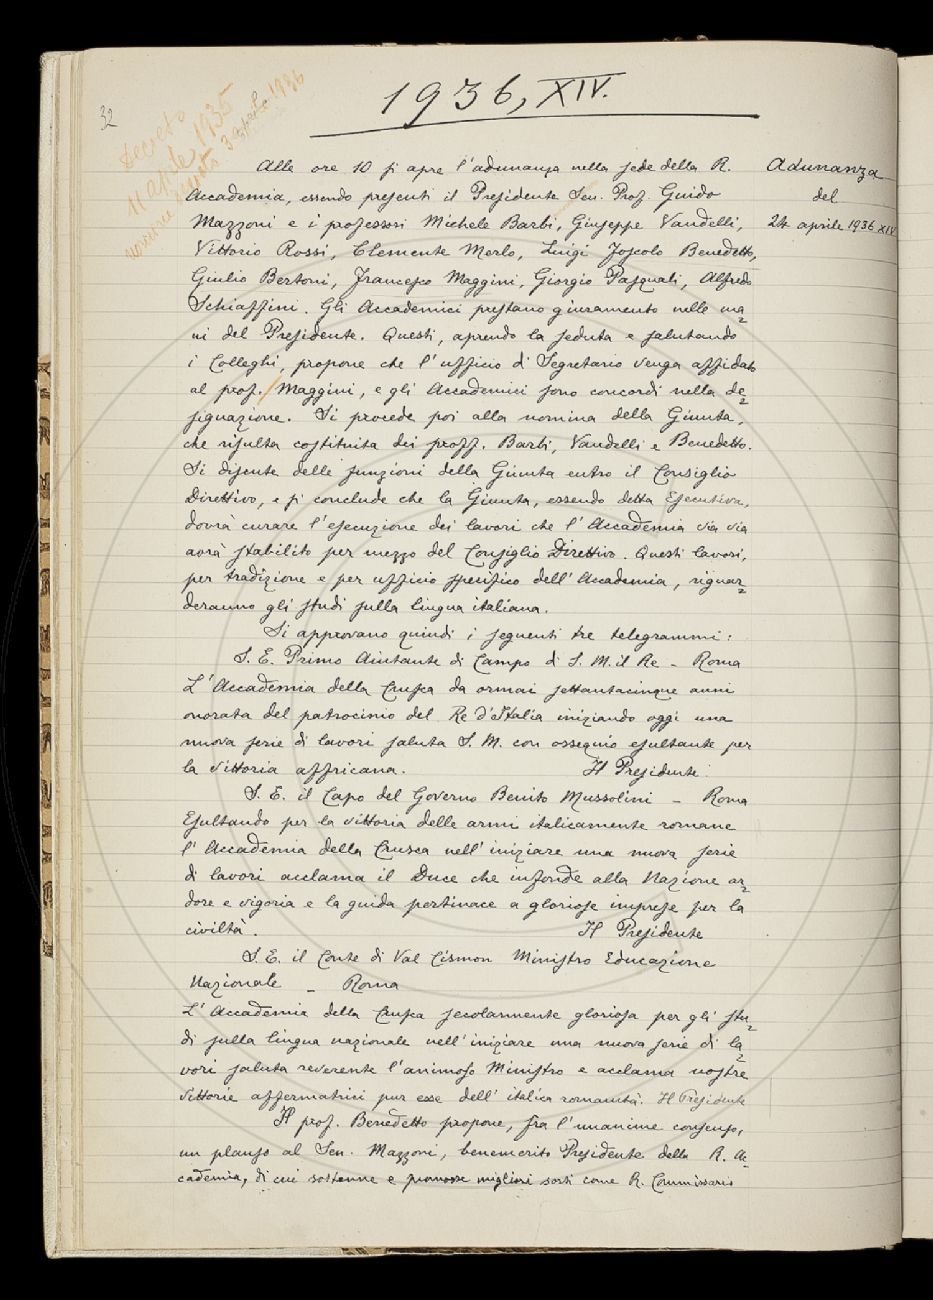 32
Decreto
11 aprile 1935
nomine 3 aprile 1936
1936, XIV.
Adunanza
del
24 aprile 1936 XIV
Alle ore 10 si apre l'adunanza nella sede della R.
Accademia, essendo presenti il Presidente Sen. Prof. Guido
Mazzoni e i professori Michele Barbi, Giuseppe Vandelli,
Vittorio Rossi, Clemente Merlo, Luigi Foscolo Benedetto,
Giulio Bertoni, Francesco Maggini, Giorgio Pasquali, Alfredo
Schiaffini. Gli Accademici prestano giuramento nelle ma=
ni del Presidente. Questi, aprendo la seduta e salutando
i Colleghi, propone che l'ufficio di Segretario venga affidato
al prof. Maggini, e gli Accademici sono concordi nella de=
signazione. Si procede poi alla nomina della Giunta,
che risulta costituita dei proff. Barbi, Vandelli e Benedetto.
Si discute delle funzioni della Giunta entro il Consiglio
Direttivo, e si conclude che la Giunta, essendo detta Esecutiva,
dovrà curare l'esecuzione dei lavori che l'Accademia via via
avrà stabilito per mezzo del Consiglio Direttivo. Questi lavori,
per tradizione e per ufficio specifico dell'Accademia, riguar=
deranno gli studi sulla lingua italiana.
Si approvano quindi i seguenti tre telegrammi:
S. E. Primo Aiutante di Campo di S. M. il Re - Roma
L'Accademia della Crusca da ormai settantacinque anni
onorata del patrocinio del Re d'Italia iniziando oggi una
nuova serie di lavori saluta S. M. con ossequio esultante per
la vittoria affricana. Il Presidente.
S. E. il Capo del Governo Benito Mussolini - Roma
Esultando per la vittoria delle armi italicamente romane
l'Accademia della Crusca nell'iniziare una nuova serie
di lavori acclama il Duce che infonde alla Nazione ar=
dore e vigoria e la guida pertinace a gloriose imprese per la
civiltà. Il Presidente
S. E. il Conte di Val Cismon Ministro Educazione
Nazionale - Roma
L'Accademia della Crusca secolarmente gloriosa per gli stu=
di sulla lingua nazionale nell'iniziare una nuova serie di la=
vori saluta reverente l'animoso Ministro e acclama nostre
vittorie affermatrici pur esse dell'italica romanità. Il Presidente
Il prof. Benedetto propone, fra l'unanime consenso,
un plauso al Sen. Mazzoni, benemerito Presidente della R. Ac=
cademia, di cui sostenne e promosse migliori sorti come R. Commissario